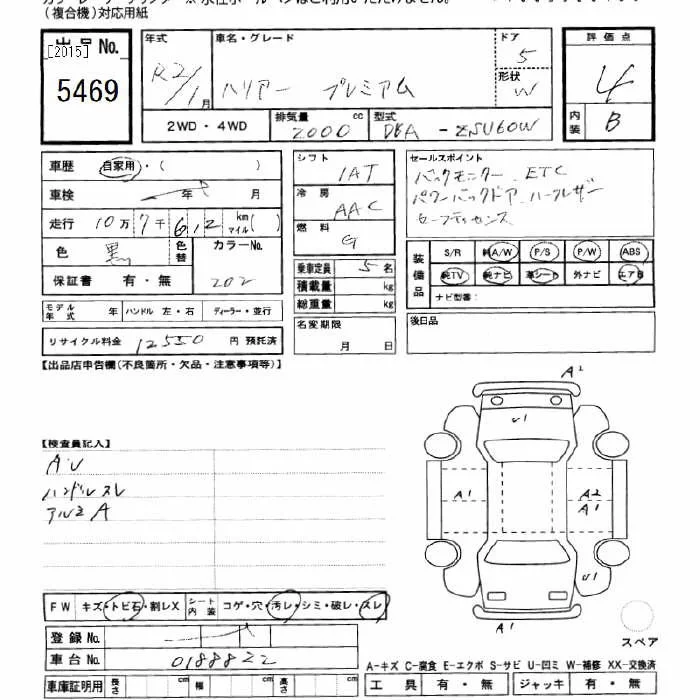 (複合機)対応用紙
出品No.
[2015]
5469
年式
R2/1月
車名・グレード
ハリアー プレミアム
ドア
5
形状
W
評価点
4
内装
B
2WD・4WD
排気量
2000
cc
型式
DBA-ZSU60W
車歴
自家用・( )
車検
年 月
走行
10万7千612
km
マイル( )
色
黒
色替
カラーNo.
202
保証書 有・無
モデル年式 年
ハンドル 左・右
ディーラー・並行
リサイクル料金 12550 円 預託済
シフト
IAT
冷房
AAC
燃料
G
乗車定員 5 名
積載量 kg
総重量 kg
名変期限
月 日
セールスポイント
バックモニター、ETC
パワーバックドア、ハーフレザー
セーフティセンス
装備品
S/R
純A/W
P/S
P/W
ABS
純TV
純ナビ
革シート
外ナビ
エアB
ナビ型番:
後日品
【出品店申告欄(不良箇所・欠品・注意事項等)】
【検査員記入】
A・U
ハンドルスレ
アルミA
A2
U1
A1
A2
A1
U1
A1
スペア
FW
キズ・トビ石・割レX
シート内装
コゲ・穴・汚レ・シミ・破レ・スレ
登録No.
車台No.
0188822
車庫証明用
長さ cm
幅 cm
高さ cm
A-キズ C-腐食 E-エクボ S-サビ U-凹ミ W-補修 XX-交換済
工具 有・無
ジャッキ 有・無